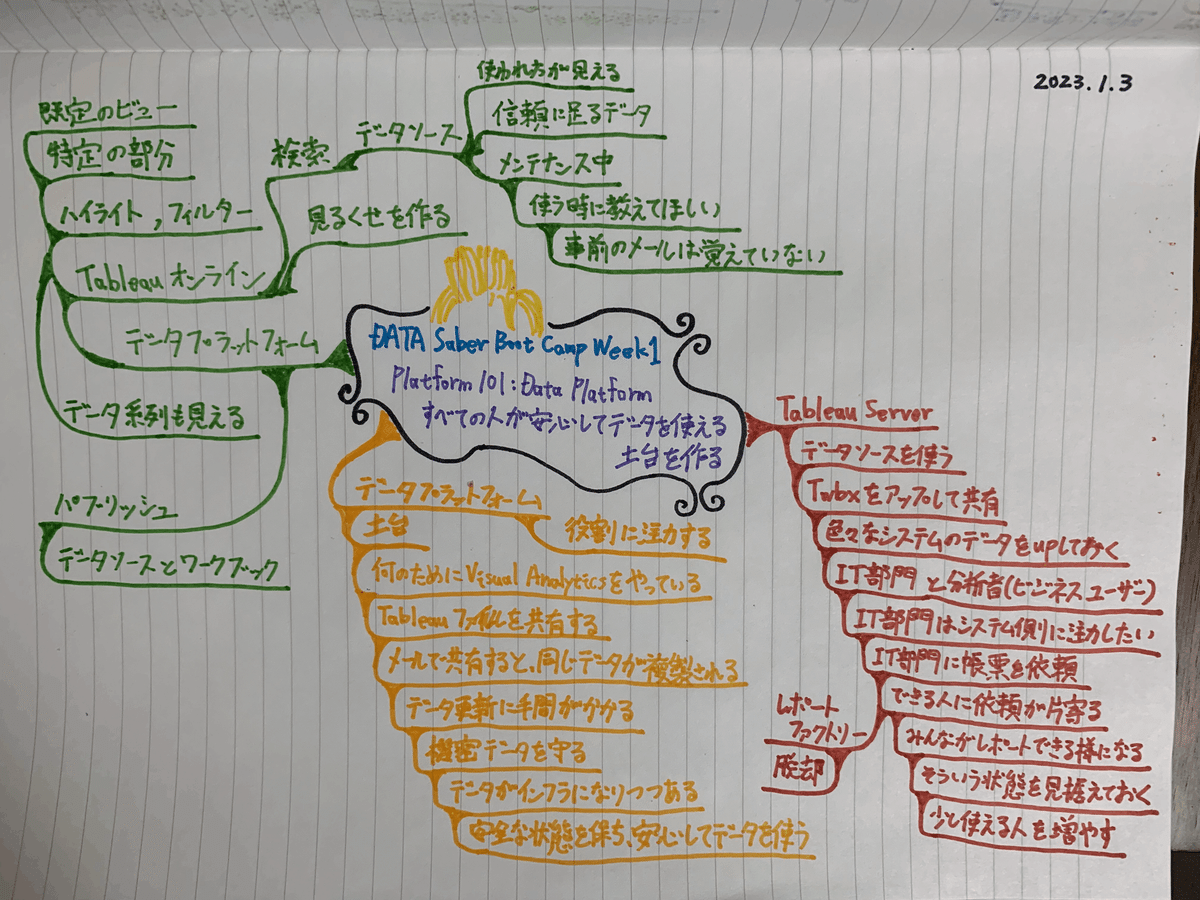 2023.1.3
ĐATA Saber Boot Camp Week1
Platform 101:Data Platform
すべての人が安心してデータを使える
土台を作る
Tableau Server
データソースを使う
Twbxをアップして共有
色々なシステムのデータをupしておく
IT部門と分析者(ビジネスユーザー)
IT部門はシステム側に注力したい
IT部門に帳票を依頼
できる人に依頼が片寄る
レポート
ファクトリー
脱却
みんながレポートできる様になる
そういう状態を見据えておく
少し使える人を増やす
データプラットフォーム
役割に注力する
土台
何のためにVisual Analyticsをやっている
Tableauファイルを共有する
メールで共有すると、同じデータが複製される
データ更新に手間がかかる
機密データを守る
データがインフラになりつつある
安全な状態を保ち、安心してデータを使う
データプラットフォーム
パブリッシュ
データソースとワークブック
Tableauオンライン
検索
データソース
使われ方が見える
信頼に足るデータ
メンテナンス中
使う時に教えてほしい
事前のメールは覚えていない
見るくせを作る
既定のビュー
特定の部分
ハイライト,フィルター
データ系列も見える